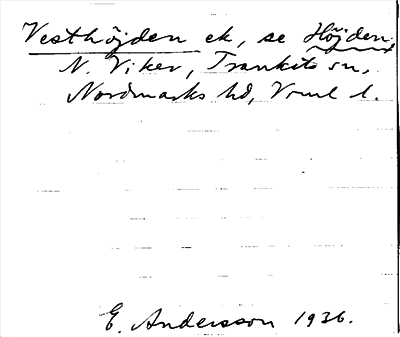 Vesthöjden ek, se Höjden,
N. Viker, Trankils sn,
Nordmarks hd, Vrml l.
E. Andersson 1936.